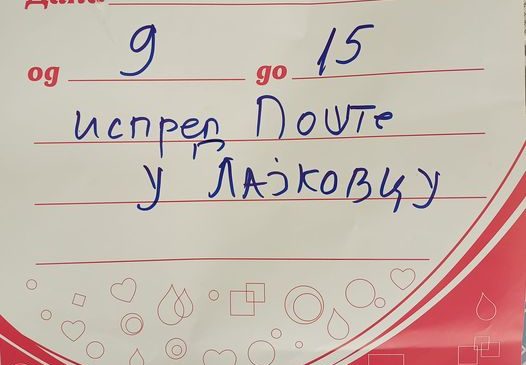 Дана
од 9 до 15
испред Поште
у Лајковцу